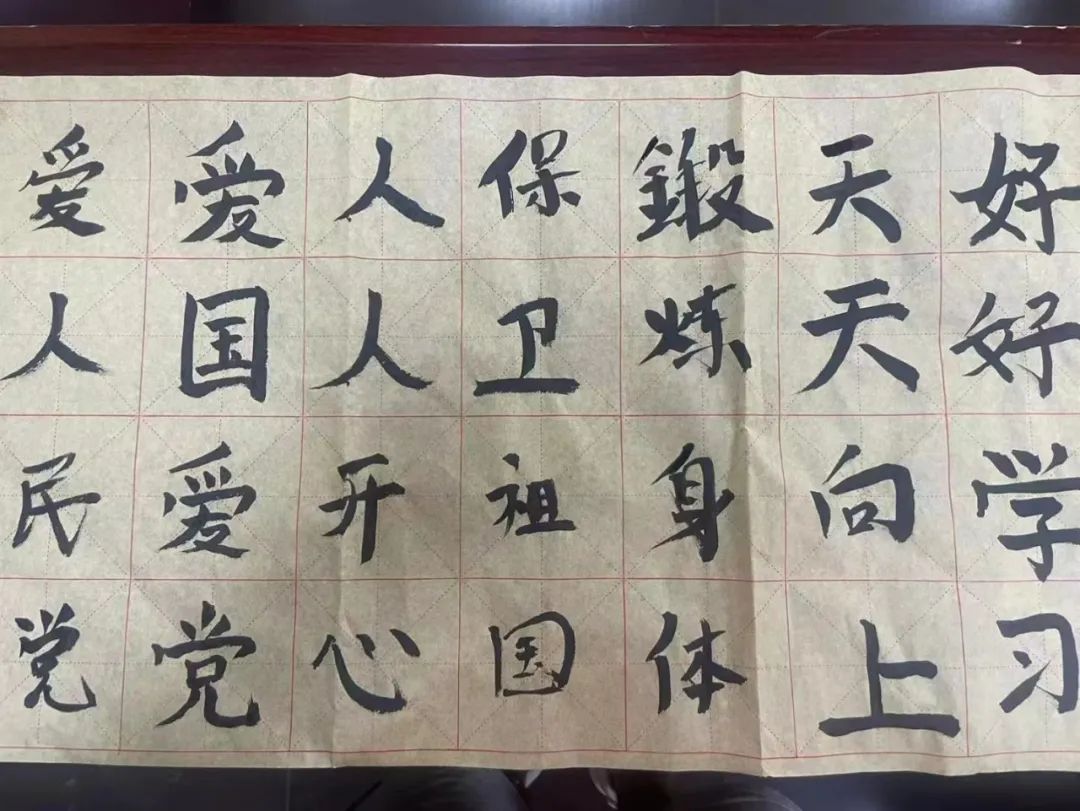 好好学习
天天向上
鍛炼身体
保卫祖国
人人开心
爱国爱党
爱人民党